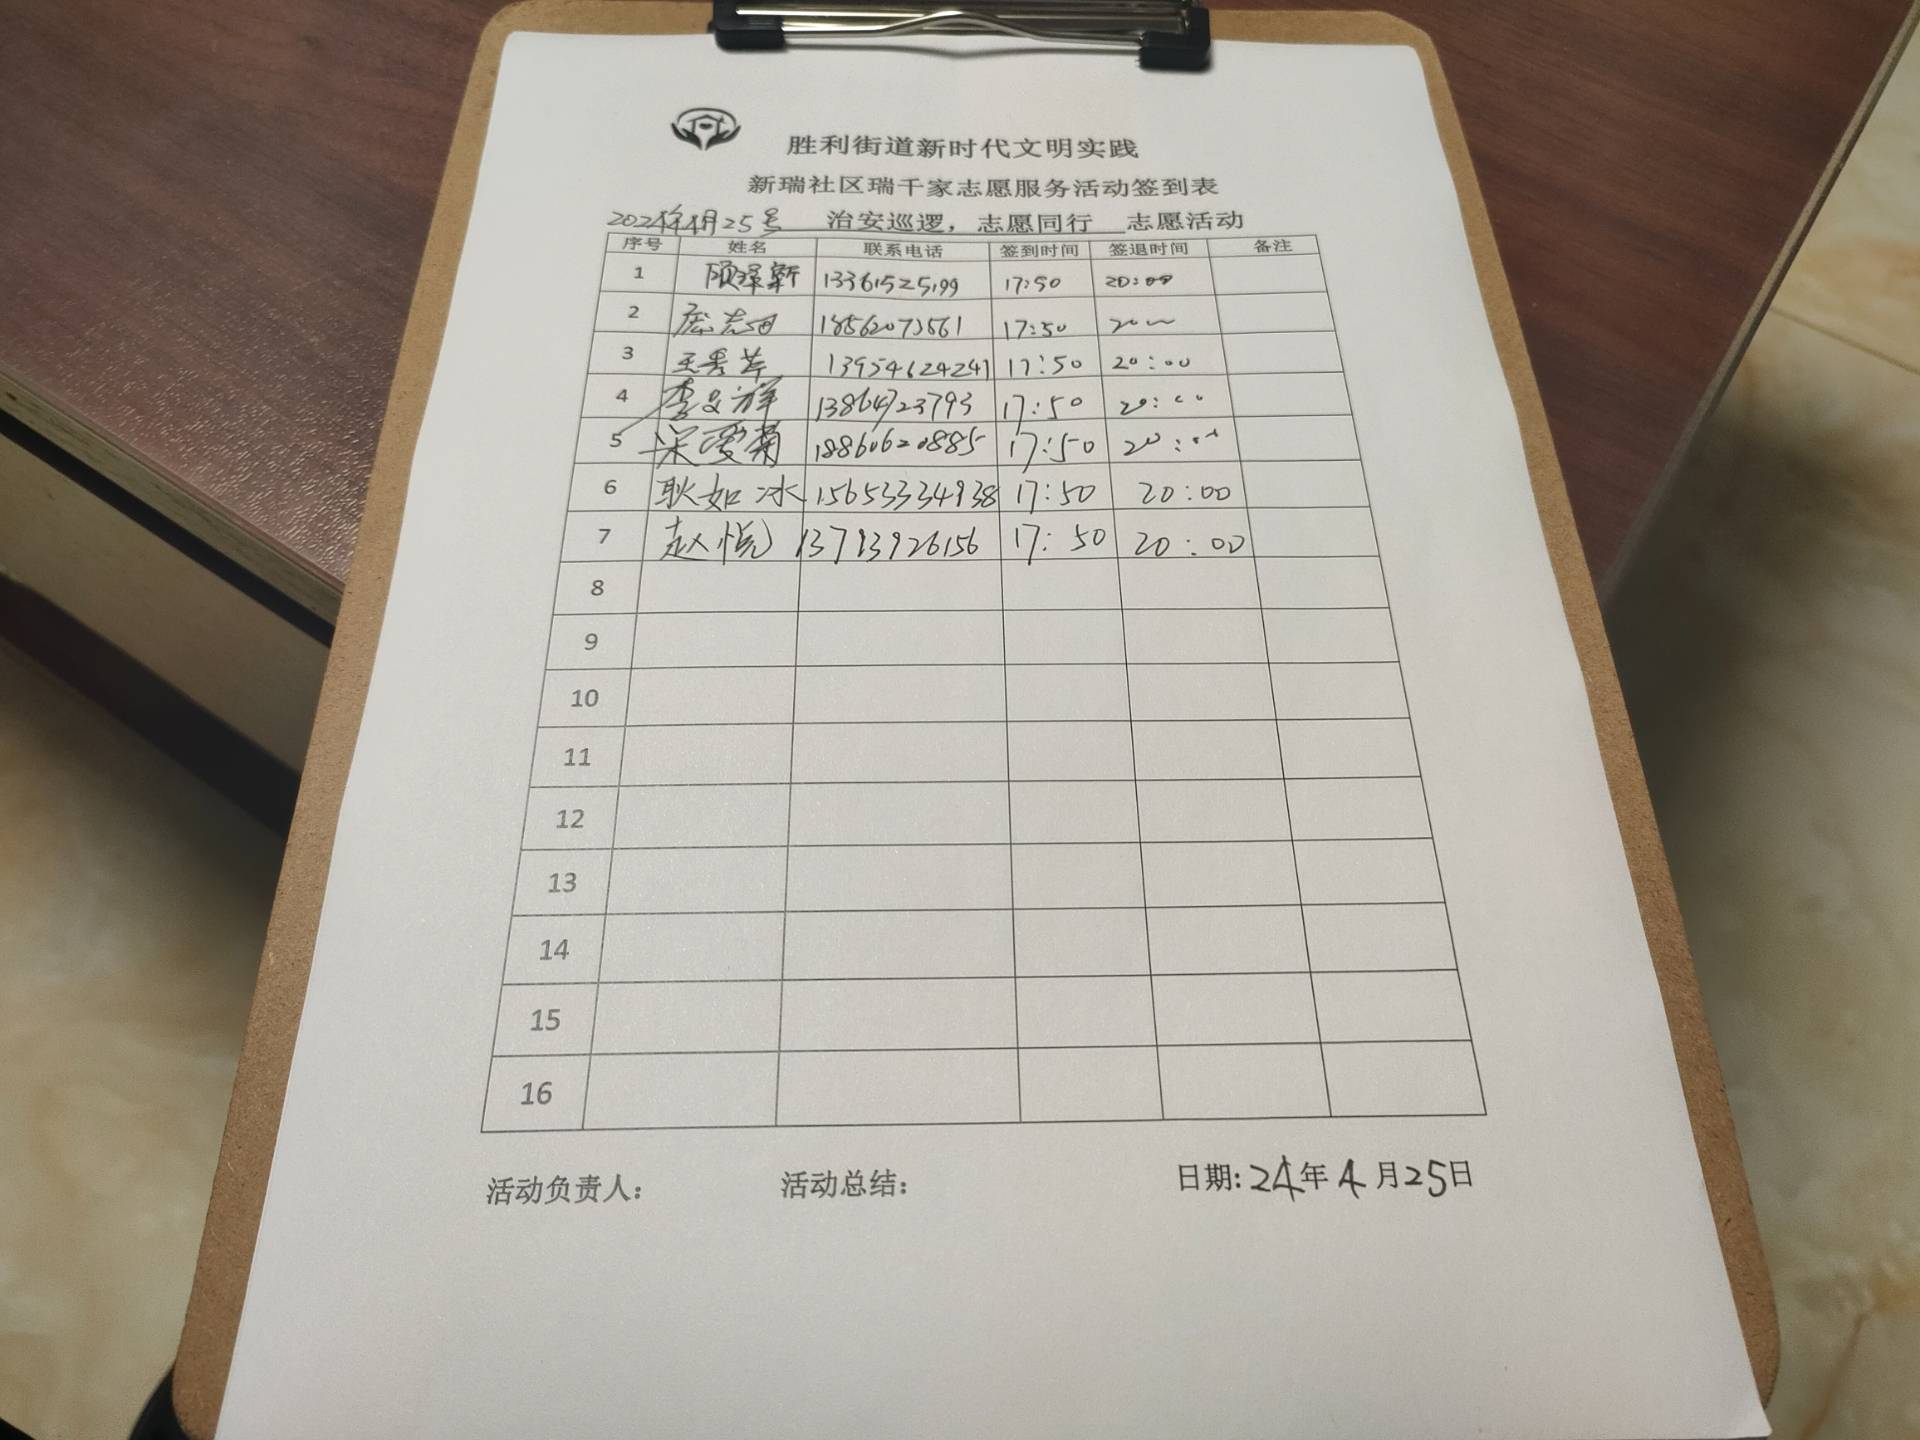 胜利街道新时代文明实践
新瑞社区瑞千家志愿服务活动签到表
2024年4月25号 治安巡逻，志愿同行 志愿活动
序号 姓名 联系电话 签到时间 签退时间 备注
1 顾泽新 13361525199 17:50 20:00
2 18562073561 17:50
3 王秀芹 13954624241 17:50 20:00
4 李文祥 13864723793 17:50 20:00
5 梁爱菊 18860620885 17:50 20:00
6 耿如冰 15653334938 17:50 20:00
7 赵悦 13793926156 17:50 20:00
8
9
10
11
12
13
14
15
16
活动负责人： 活动总结： 日期:24年4月25日